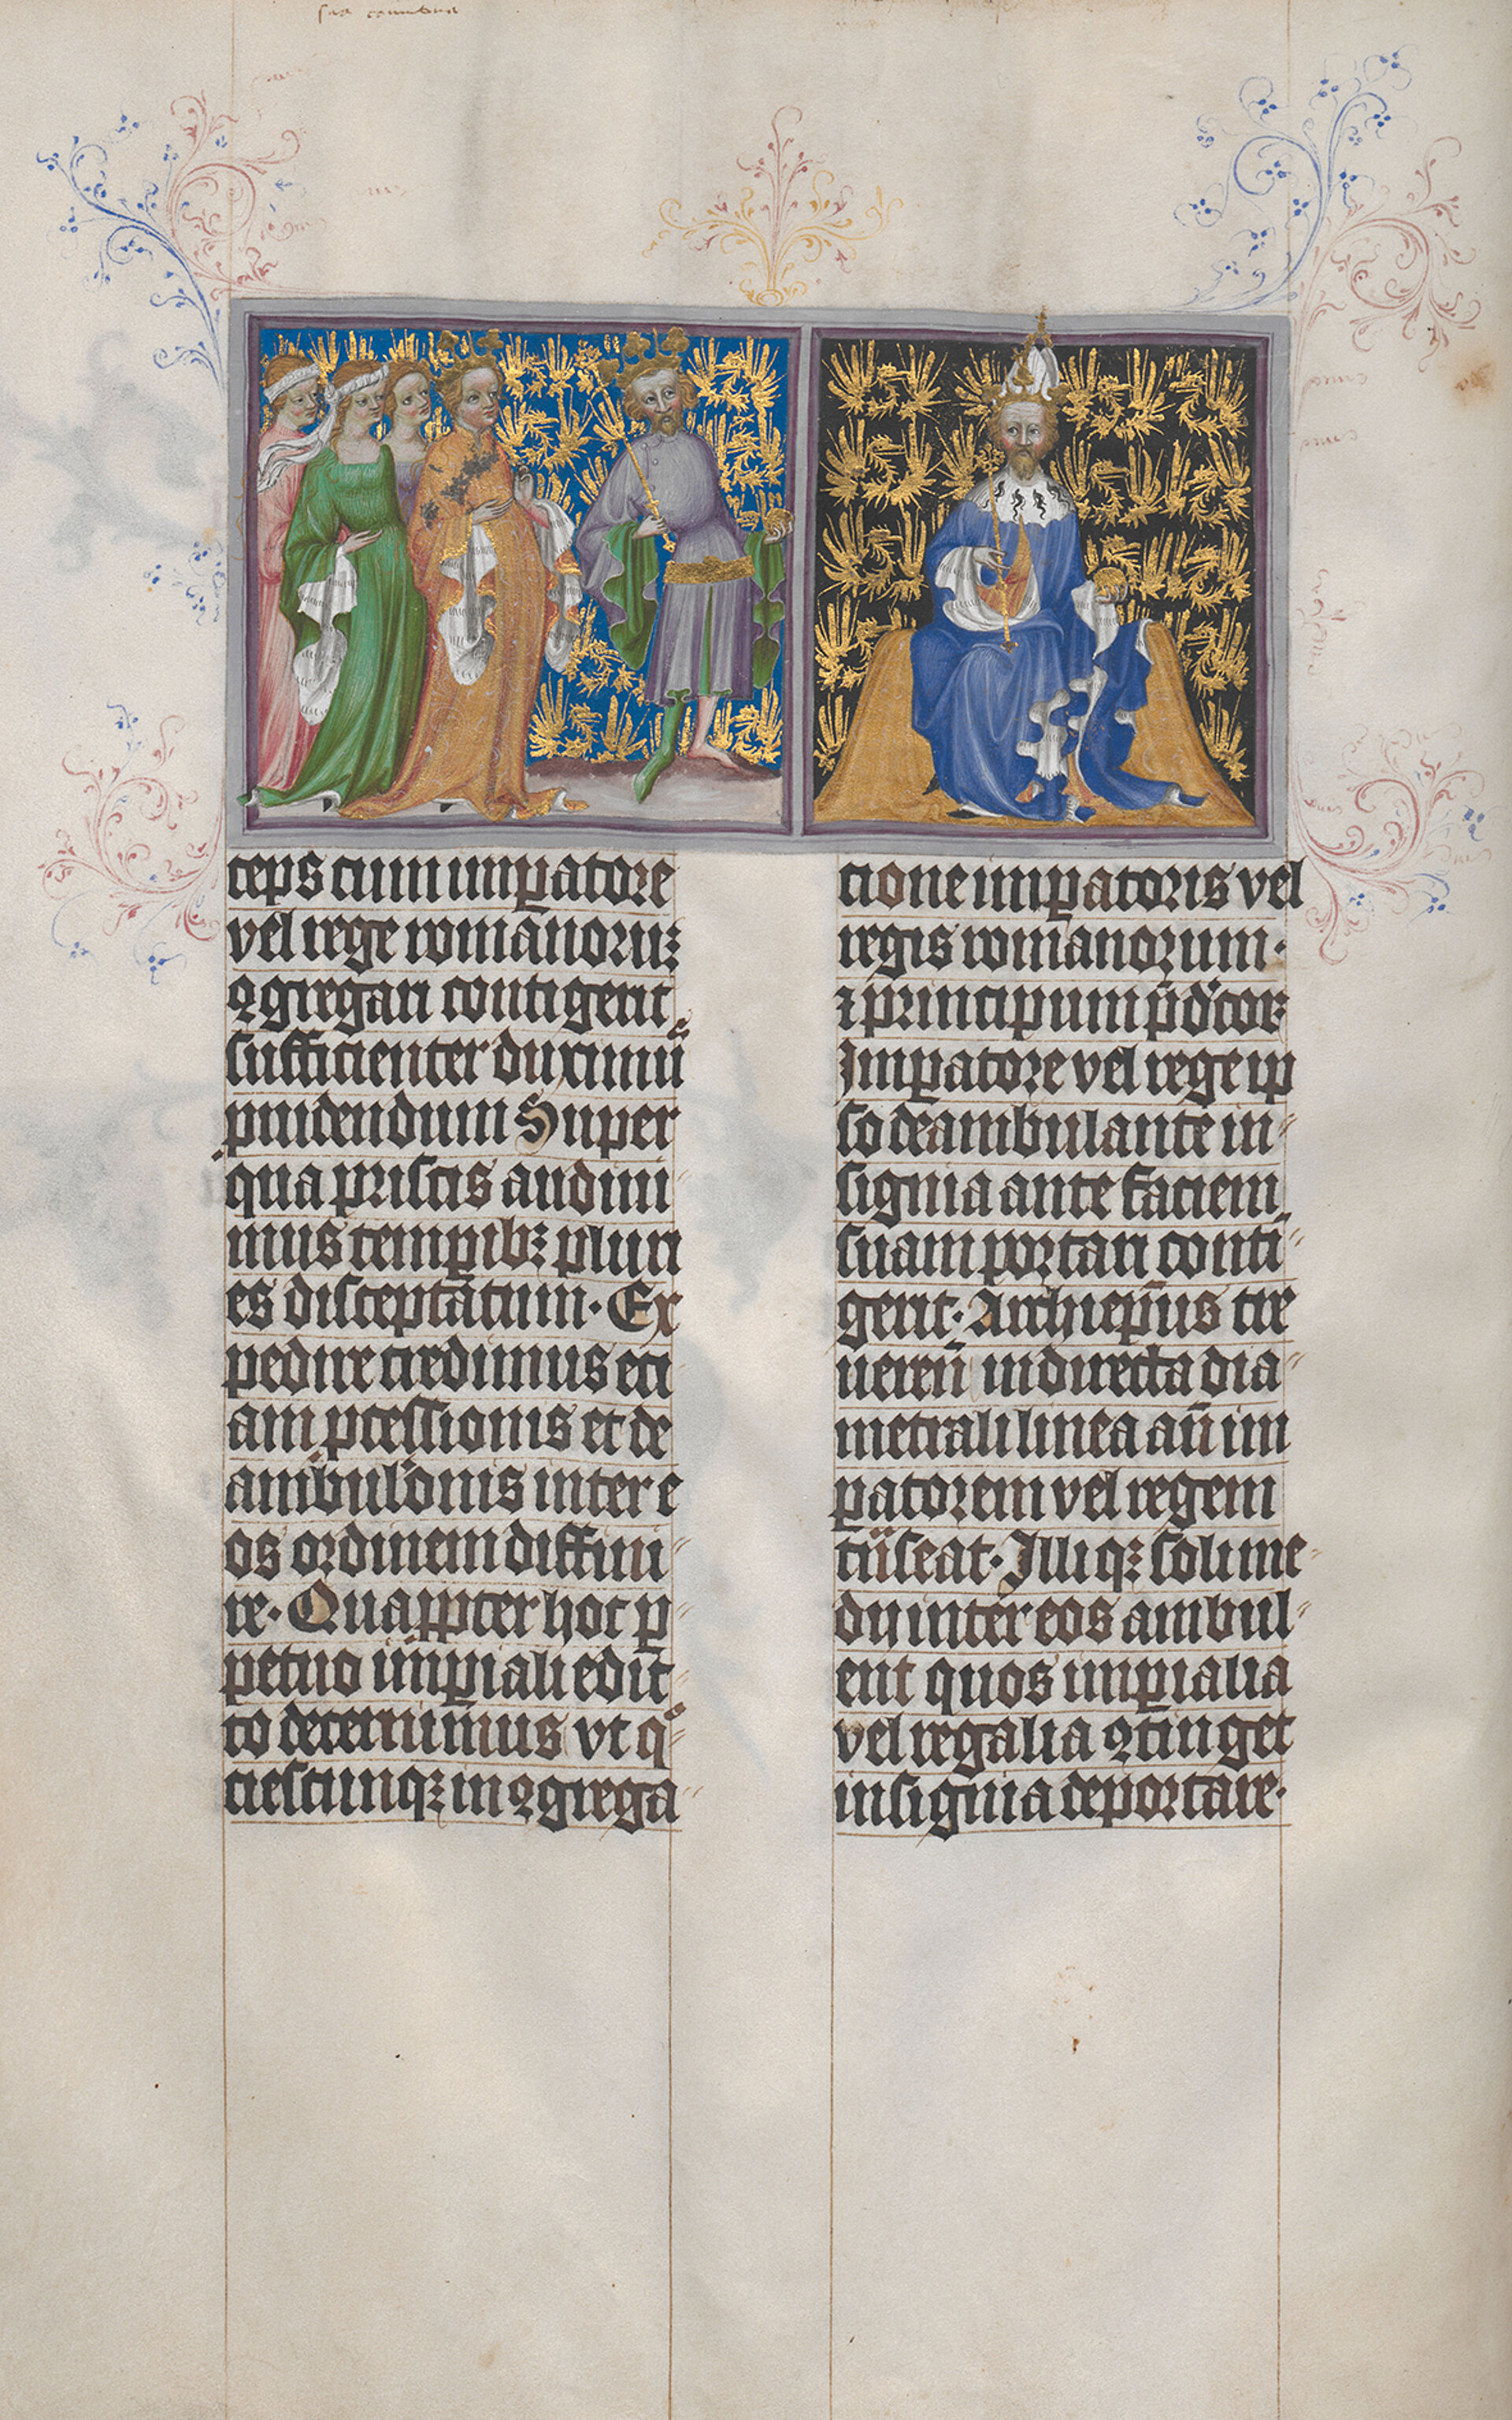 ceps cum imp̲atore
vel rege romanoruꝫ
ꝯgregari contigerit
sufficienter duximꝰ
prouidendum Super
qua priscis audiui
mus temp̲ibꝫ pluri
es disceptatum. Ex
pedire credimus eci
am ꝓcessionis et de
ambul̄onis inter e
os ordinem diffini
re. Quapp̲ter hoc p̲
petuo imp̲iali edic
to decernimus vt qͦ
ciescunqꝫ in ꝯgrega
cione imp̲atoris vel
regis romanorum.
⁊ principum p̄dc̄oꝝ
Imp̲atore vel rege ip
so deambulante in
signia ante faciem
suam portari conti
gerit. Archiep̄us tre
ueren̄ in directa dia
metrali linea an̄ im
p̲atorem vel regem
tn̄seat. Illi qꝫ soli me
dij inter eos ambul
ent quos imp̲ialia
vel regalia ꝯtinget
insignia deportare.